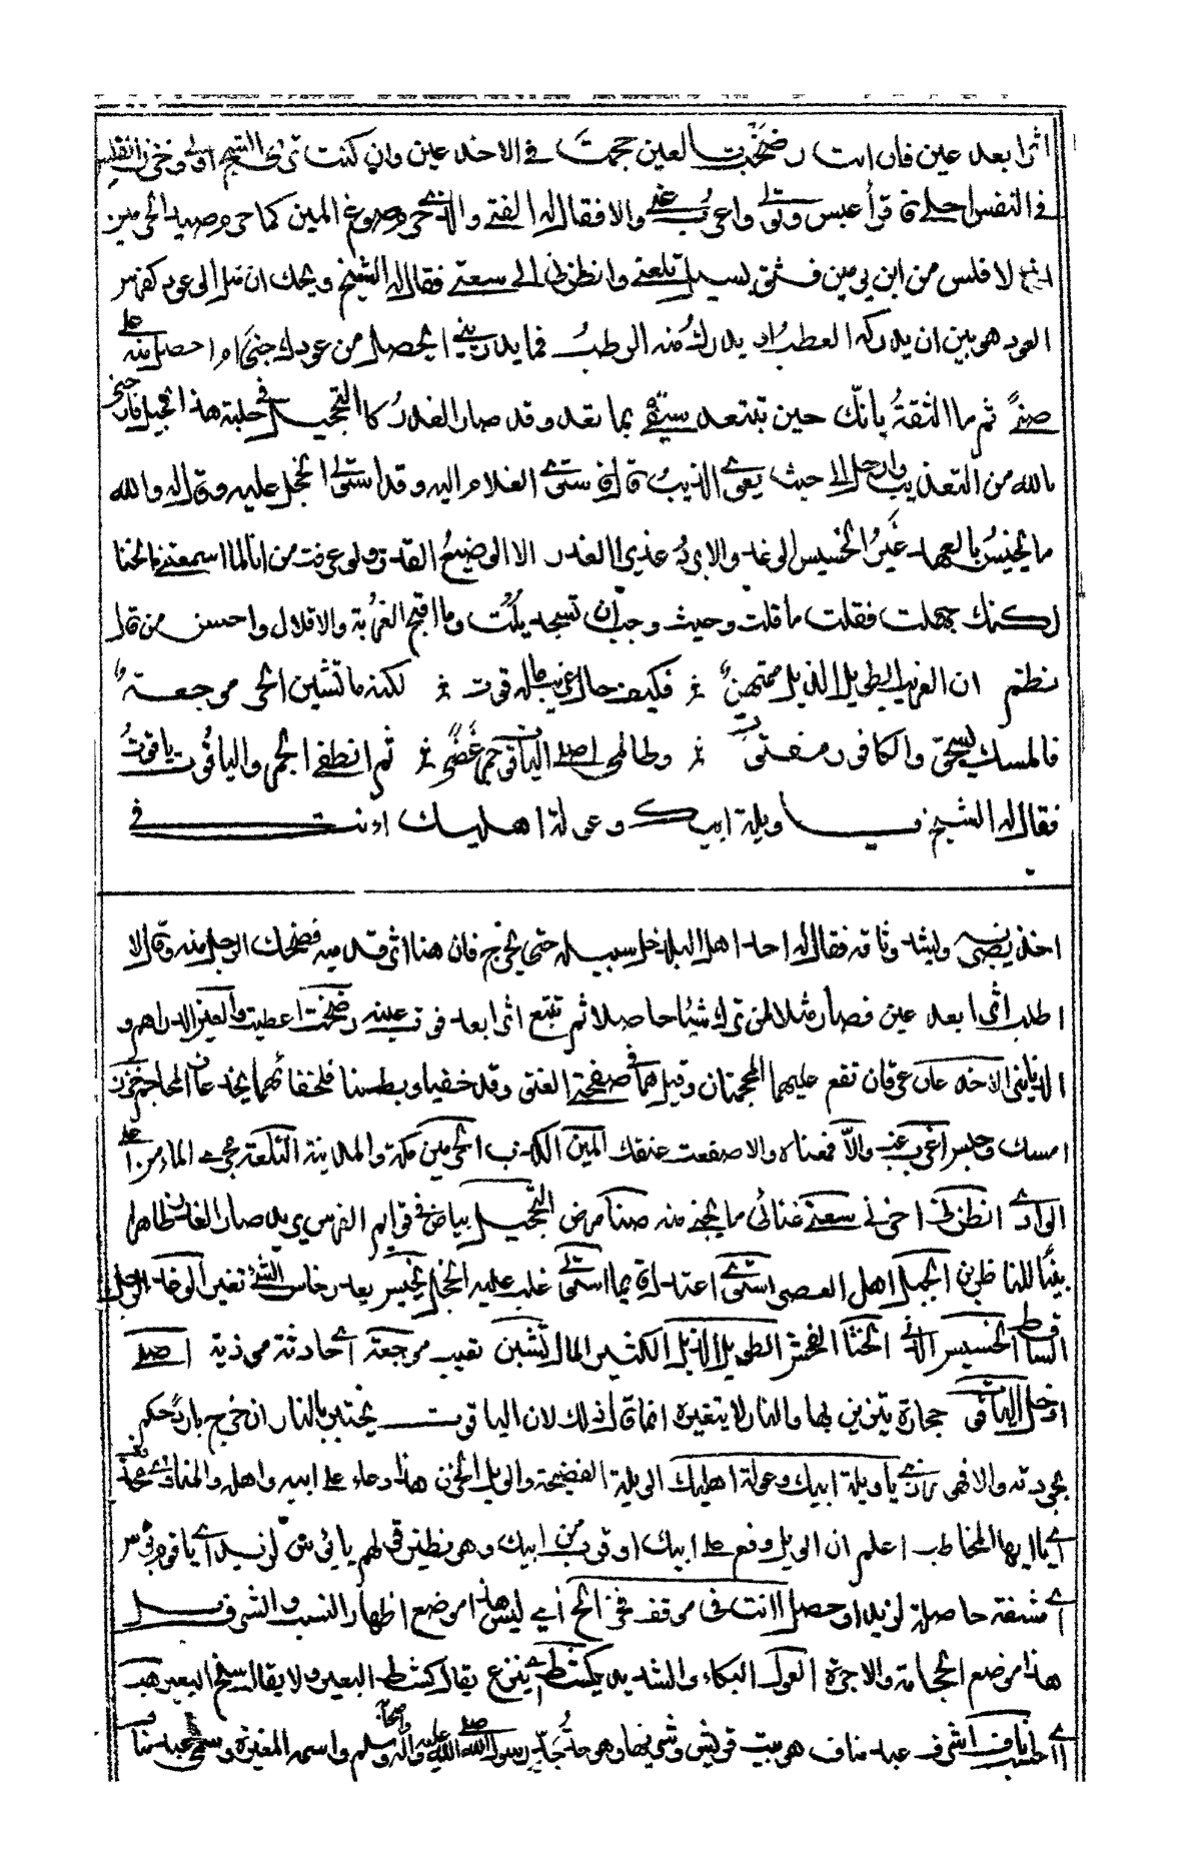 اثرا بعد عين فان انت رضخت بالعين حجمت في الاخدعين وان كنت ترى الشح اولى وخزن الفلس
في النفس احلى فاقرأ عبس وتولى واغرب عني والا فقال له الفتى والذي حرم صوغ المين كما حرم صيد الحرمين
اني لافلس من ابن يومين فثق بسيل تلعتي وانظرني الى سعتي فقال له الشيخ ويحك ان مثل الوعود كغرس
العود هو بين ان يدركه العطب او يدرك منه الرطب فما يدريني ايحصل من عودك جنى ام احصل منه على
ضنى ثم ما الثقة بانك حين تبتعد ستفي بما تعد وقد صار الغدر كالتحجيل في حلية هذا الجيل فارحني
بالله من التعذيب وارحل الى حيث يعوي الذيب قال فاستوى الغلام اليه وقد استولى الخجل عليه وقال والله
ما يخيس بالعهد غير الخسيس الوغد ولا يرد غدير الغدر الا الوضيع القدر ولو عرفت من انا لما اسمعتني الخنا
لكنك جهلت فقلت ما قلت وحيث وجب ان تسجد بلت وما اقبح الغربة والاقلال واحسن من قال
نظم ان الغريب الطويل الذيل ممتهن فكيف حال غريب ماله قوت لكنه ما تشين الحر موجعة
فالمسك يسحق والكافور مفتوت وطالما اصلي الياقوت جمر غضى ثم انطفى الجمر والياقوت ياقوت
فقال له الشيخ فيا ويلة ابيك وعولة اهليك اانت في
اخذ يضى وليشد وثاقه فقال له احد اهل البلد خل سبيله حتى يخرج فان هنا اثر قدميه فضحك الرجل منه وقال لا
اطلب اثرا بعد عين فصار مثلا لمن ترك شيئا حاصلا ثم تبتع اثرا بعد فوت عينه رضخت اعطيت والعين الدراهم و
الدنانير الاخدعان عرقان تقع عليهما المحجمتان وقيل هما في صفحة العنق وقد خفيا وبطنا فلخفائهما يخدعان الحاجم خزن
امسك وحبس اغرب عني والا فمعناه والا صفعت عنقك المين الكذب الحرمين مكة والمدينة التلعة مجرى الماء من اعلى
الوادي انظرني اخرني سعتي غنائي ما يجنى منه ضنا مرض التحجيل بياض في قوائم الفرس يريد صار الغدر ظاهرا
بينا للناظرين الجيل اهل العصر استوى اعتدل قائما استولى غلب عليه الخجل يخيس بعد رخاس الشئ تغير الوغد الرجل
الساقط الخسيس الدني الخنا الفحش الطويل الذيل الكثير المال تشين تعيب موجعة اي حادثة موذية اصلي
ادخل الياقوت حجارة يتزين بها والنار لا يتغيره انما قال ذلك لان الياقوت يختبر بالنار ان خرج باردا حكم
بجودته والا فهو ردي يا ويلة ابيك وعولة اهليك الويلة الفضيحة والويل الحزن هذا دعاء على ابيه واهله والمنادى محذوف
اي يا ايها المخاطب اعلم ان الويل وقع على ابيك او قرب من ابيك وهو نظير قولهم يا بؤس لزيد اي يا قوم بؤس
اي مشقة حاصلة لزيد او حصل اانت في موقف فخر الخ اي ليس هذا موضع اظهار النسب والشرف بل
هذا موضع الحجامة والاجرة العول البكاء والشديد يكشط اي ينزع يقال كشط البعير ولا يقال سلخ البعير هب
اي احسب اناف اشرف عبد مناف هو بيت قريش وشرفها وهو جد جد رسول الله صلى الله عليه وآله واصحابه وسلم واسمه المغيرة وسمي عبد مناف